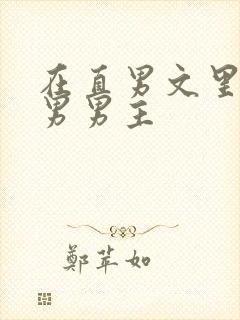 在直男文里
男男主
鄭苹如